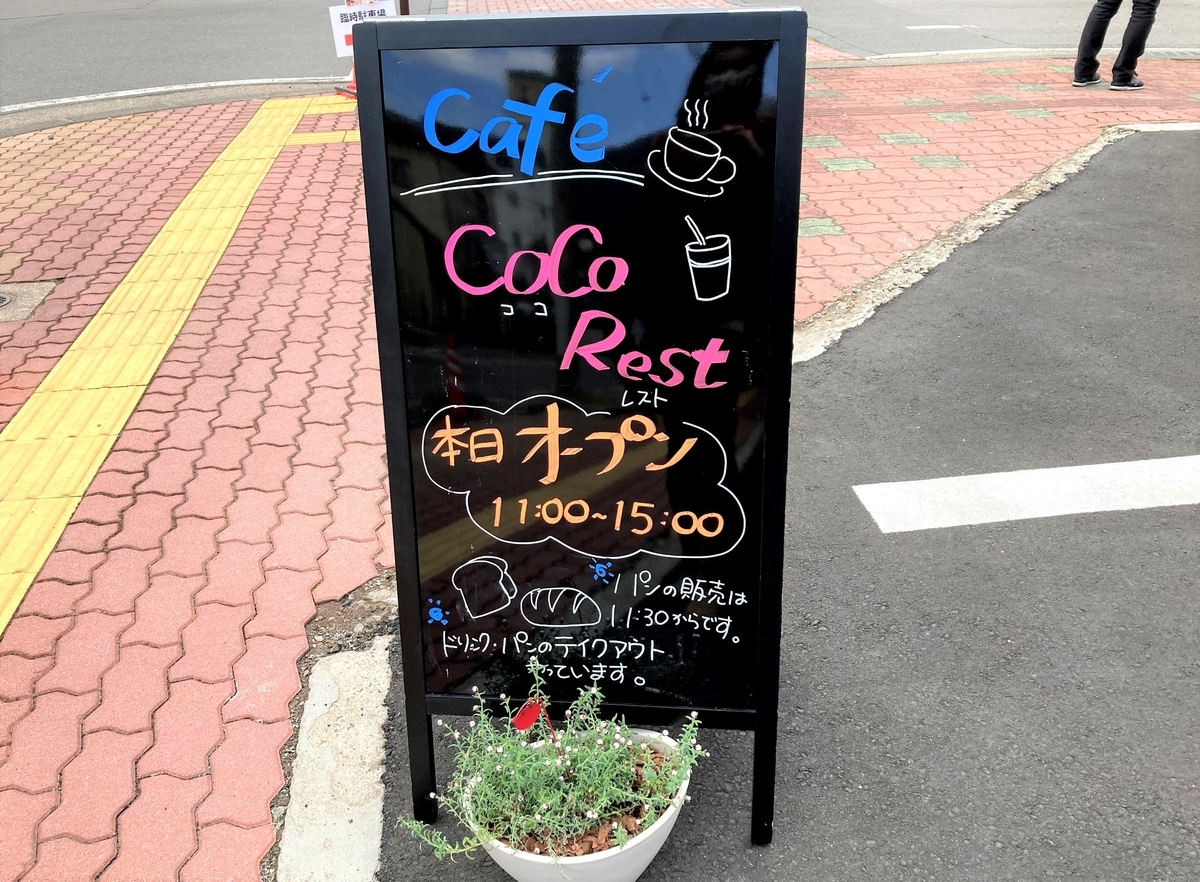 臨時駐車場
Café
CoCo
ココ
Rest
レスト
本日オープン
11:00~15:00
パンの販売は
11:30からです。
ドリンク・パンのテイクアウト
やっています。